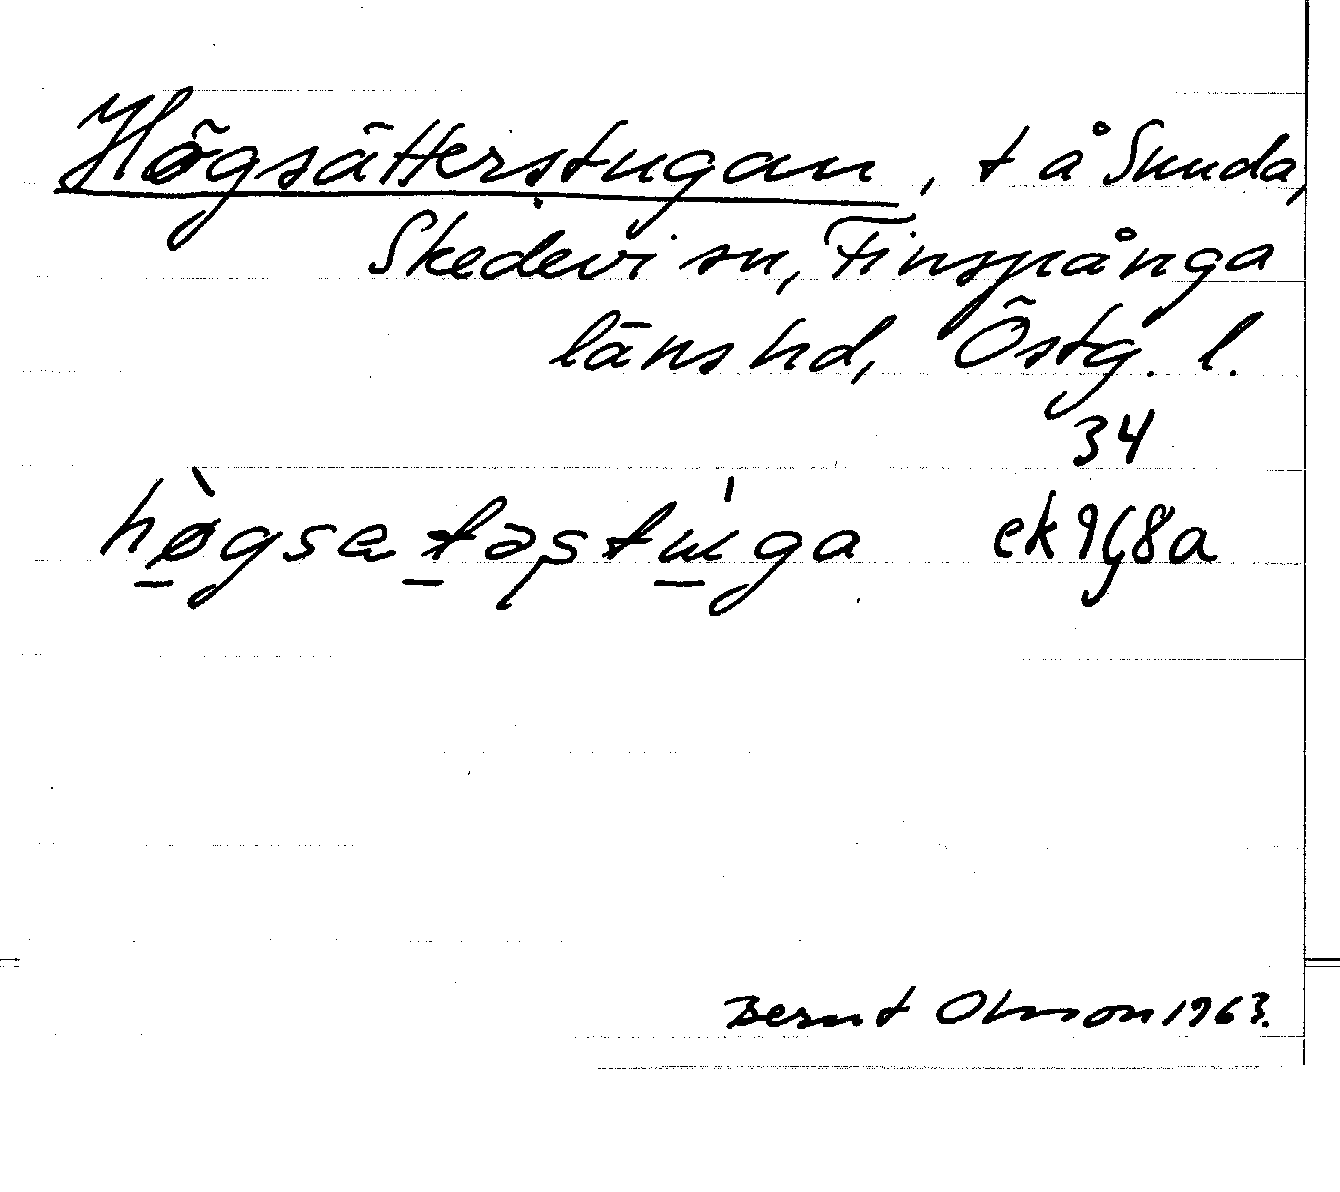 Högsätterstugan, t å Sunda,
Skedevi sn, Finspånga
läns hd, Östg. l.
34
hø̀gsetəstuga ek 9G8a
Bernt Olsson 1963.